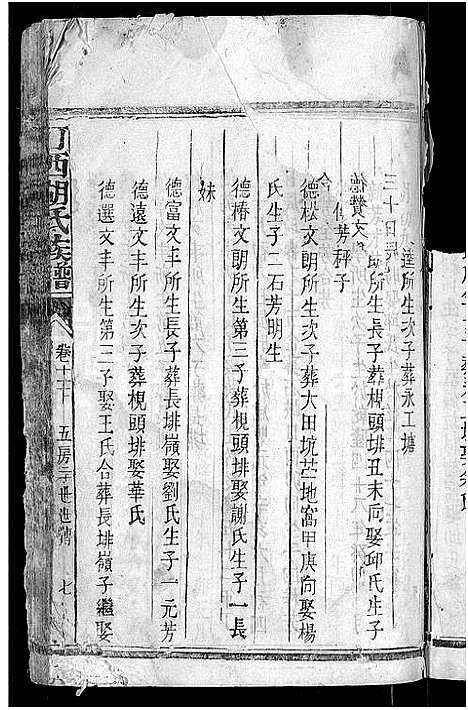 達所生次子葬永工塘
三十日
德贊文朗所生長子葬梘頭排丑未向娶邱氏生子
信芳秤子
德松文朗所生次子葬大田坑芏地窩甲庚向娶楊
氏生子二石芳明生
德椿文朗所生第三子葬梘頭排娶謝氏生子一長
妹
德富文丰所生長子葬長排嶺娶劉氏生子一元芳
德遠文丰所生次子葬梘頭排娶華氏
德選文丰所生第三子娶王氏合葬長排嶺子繼娶
西胡氏族譜
卷十
五房
世傳
七